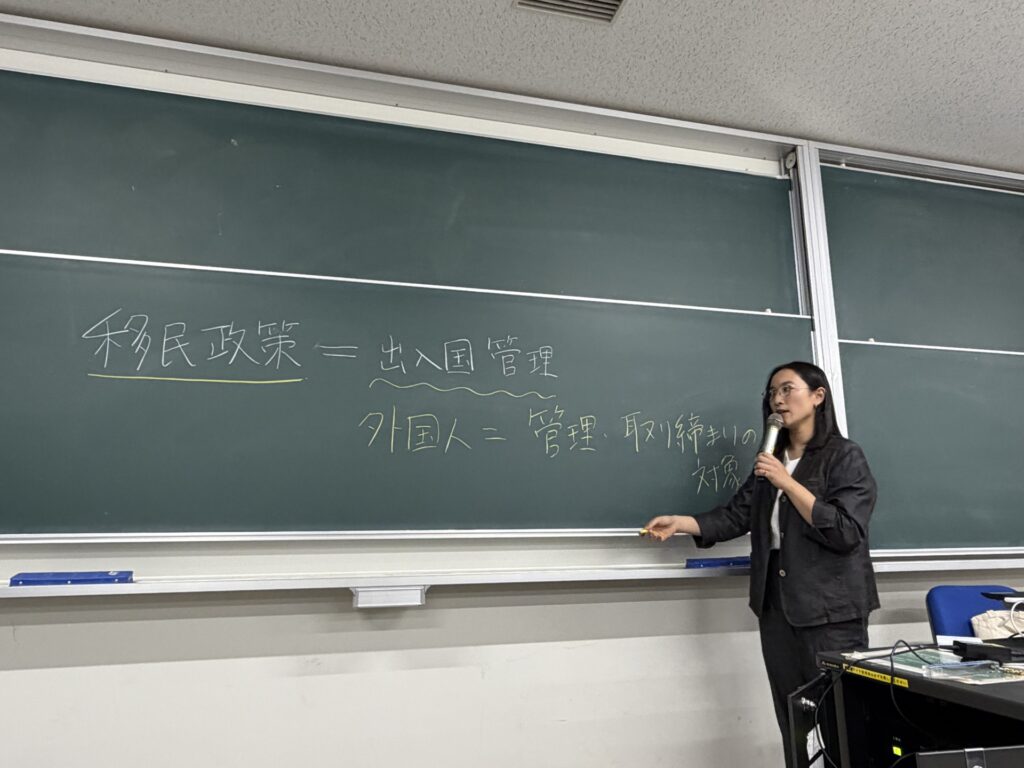 移民政策 = 出入国管理
外国人 = 管理・取り締まりの
対象